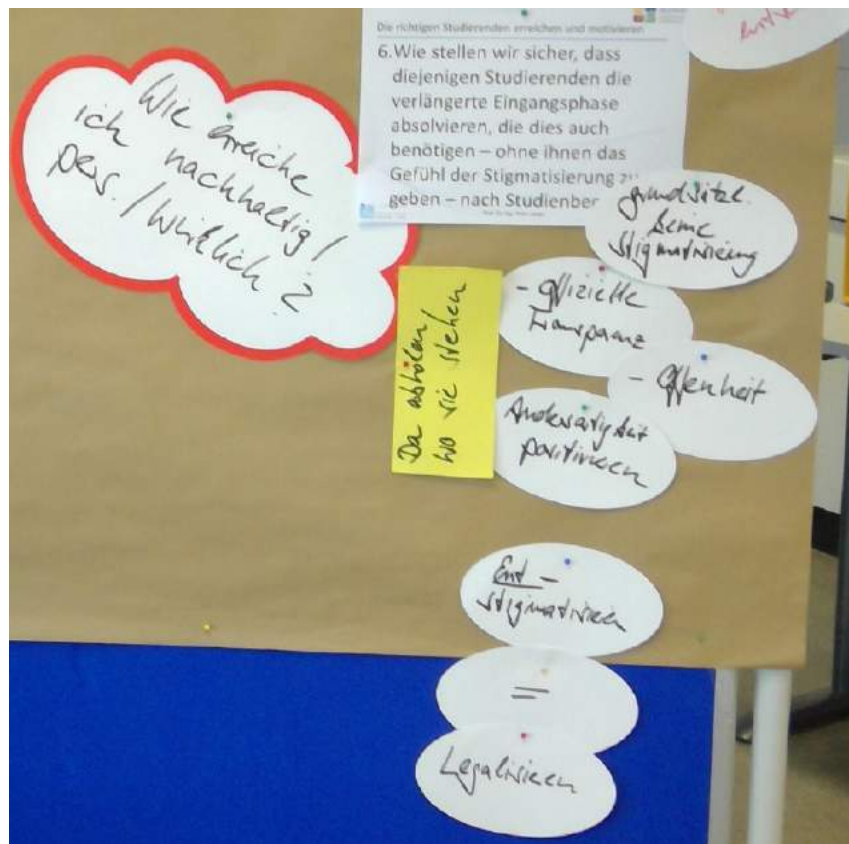 Die richtigen Studierenden erreichen und motivieren
6. Wie stellen wir sicher, dass
diejenigen Studierenden die
verlängerte Eingangsphase
absolvieren, die dies auch
benötigen – ohne ihnen das
Gefühl der Stigmatisierung zu
geben – nach Studienber
Wie erreiche
ich nachhaltig/
pers./wirklich?
grundsätzl.
keine
Stigmatisierung
- offizielle
Transparenz
- Offenheit
Da abholen/
wo sie stehen
Andersartigkeit
positivieren
Ent-
stigmatisieren
=
Legalisieren